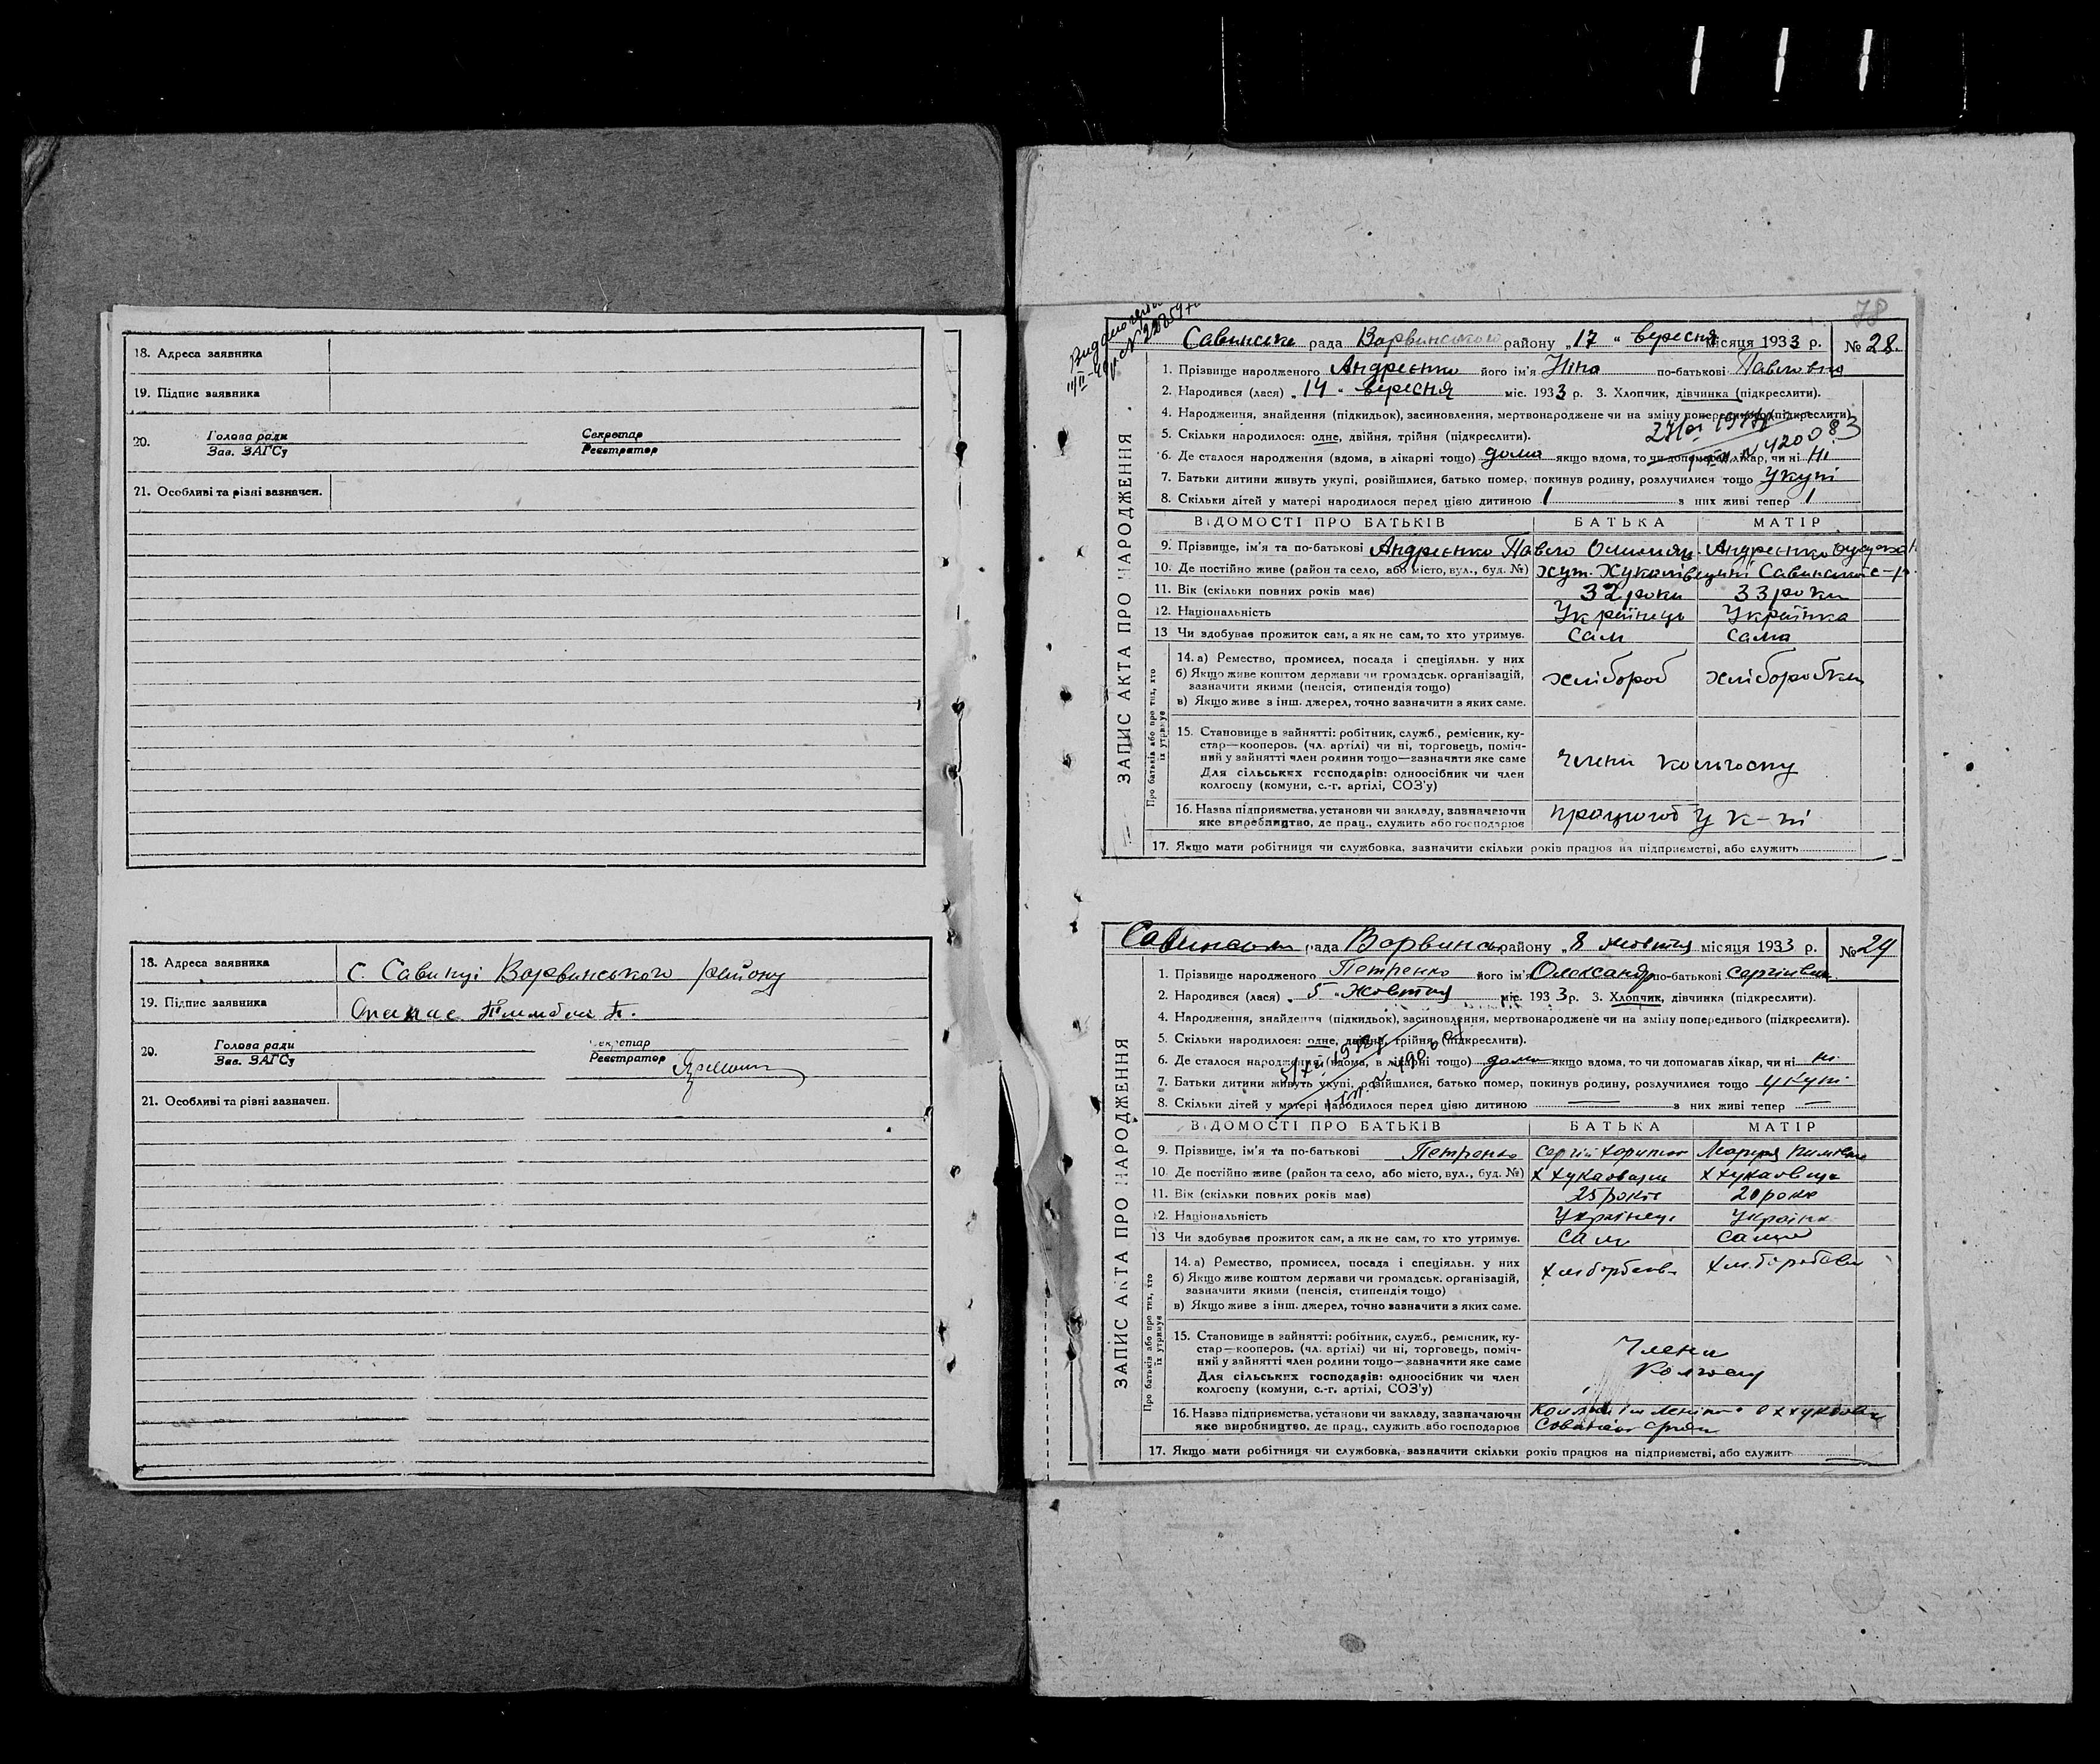 18. Адреса заявника
19. Підпис заявника
20. Голова ради Секретар
Зав. ЗАГСу Реєстратор
21. Особливі та різні зазначен.
18. Адреса заявника с. Савинці Варвинського району
19. Підпис заявника Опанас
20. Голова ради Секретар
Зав. ЗАГСу Реєстратор
21. Особливі та різні зазначен.
78
Савинська рада Варвинського району „17 " вересня місяця 1933 р. № 28.
ЗАПИС АКТА ПРО НАРОДЖЕННЯ
1. Прізвище народженого Андрєєнко його ім'я Ніна по-батькові Павловна
2. Народився (лася) „ 14 " вересня міс. 1933 р. 3. Хлопчик, дівчинка (підкреслити).
4. Народження, знайдення (підкидьок), засиновлення, мертвонароджене чи на зміну попереднього (підкреслити)
5. Скільки народилося: одне, двійня, трійня (підкреслити).
6. Де сталося народження (вдома, в лікарні тощо) дома якщо вдома, то чи допомагав лікар, чи ні Ні
7. Батьки дитини живуть укупі, розійшлися, батько помер, покинув родину, розлучилися тощо укупі
8. Скільки дітей у матері народилося перед цією дитиною 1 з них живі тепер 1
ВІДОМОСТІ ПРО БАТЬКІВ БАТЬКА МАТІР
9. Прізвище, ім'я та по-батькові Андрєєнко Павло Андрєєнко
10. Де постійно живе (район та село, або місто, вул., буд. №) хут. Савинської с-р.
11. Вік (скільки повних років має) 32 роки 33 роки
12. Національність Українець Українка
13 Чи здобуває прожиток сам, а як не сам, то хто утримує. сам сама
Про батьків або про тих, хто їх утримує
14. а) Ремество, промисел, посада і спеціяльн. у них
б) Якщо живе коштом держави чи громадськ. організацій,
зазначити якими (пенсія, стипендія тощо)
хлібороб хліборобка
в) Якщо живе з інш. джерел, точно зазначити з яких саме.
15. Становище в зайнятті: робітник, служб., ремісник, ку-
стар—кооперов. (чл. артілі) чи ні, торговець, поміч-
ний у зайнятті член родини тощо—зазначити яке саме
члени колгоспу
Для сільських господарів: одноосібник чи член
колгоспу (комуни, с.-г. артілі, СОЗ'у)
16. Назва підприємства, установи чи закладу, зазначаючи
яке виробництво, де прац., служить або господарює
працюють у к-пі
17. Якщо мати робітниця чи службовка, зазначити скільки років працює на підприємстві, або служить
Савинська рада Варвинськ району „8 жовтня місяця 1933 р. № 29
ЗАПИС АКТА ПРО НАРОДЖЕННЯ
1. Прізвище народженого Петренко його ім'я Олександр по-батькові Сергієвич
2. Народився (лася) „ 5 " жовтня міс. 1933 р. 3. Хлопчик, дівчинка (підкреслити).
4. Народження, знайдення (підкидьок), засиновлення, мертвонароджене чи на зміну попереднього (підкреслити).
5. Скільки народилося: одне, двійня, трійня (підкреслити).
6. Де сталося народження (вдома, в лікарні тощо) дома якщо вдома, то чи допомагав лікар, чи ні ні
7. Батьки дитини живуть укупі, розійшлися, батько помер, покинув родину, розлучилися тощо укупі
8. Скільки дітей у матері народилося перед цією дитиною — з них живі тепер —
ВІДОМОСТІ ПРО БАТЬКІВ БАТЬКА МАТІР
9. Прізвище, ім'я та по-батькові Петренко Сергій Марія
10. Де постійно живе (район та село, або місто, вул., буд. №)
11. Вік (скільки повних років має) 25 років 20 років
12. Національність Українець Українка
13 Чи здобуває прожиток сам, а як не сам, то хто утримує. сам сама
Про батьків або про тих, хто їх утримує
14. а) Ремество, промисел, посада і спеціяльн. у них
б) Якщо живе коштом держави чи громадськ. організацій,
зазначити якими (пенсія, стипендія тощо)
в) Якщо живе з інш. джерел, точно зазначити з яких саме.
15. Становище в зайнятті: робітник, служб., ремісник, ку-
стар—кооперов. (чл. артілі) чи ні, торговець, поміч-
ний у зайнятті член родини тощо—зазначити яке саме
Члени
колгоспу
Для сільських господарів: одноосібник чи член
колгоспу (комуни, с.-г. артілі, СОЗ'у)
16. Назва підприємства, установи чи закладу, зазначаючи
яке виробництво, де прац., служить або господарює
17. Якщо мати робітниця чи службовка, зазначити скільки років працює на підприємстві, або служить